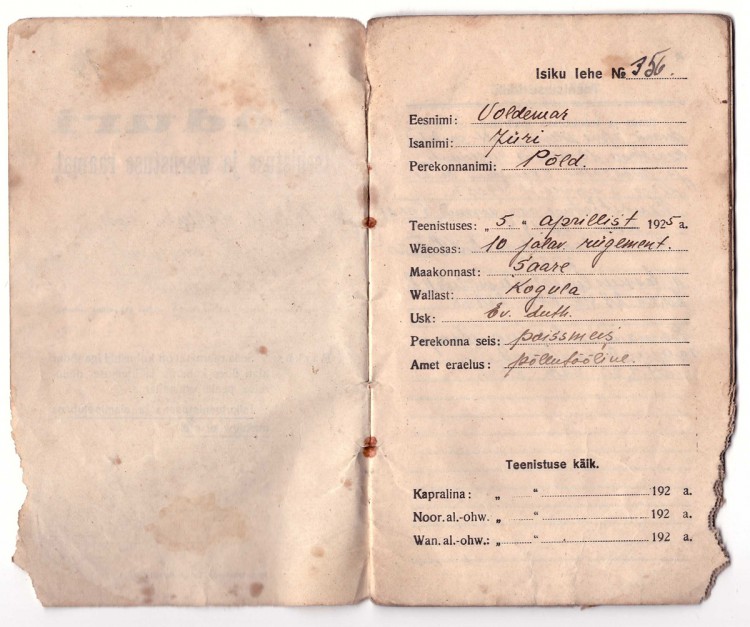 Isiku lehe № 356.
Eesnimi: Voldemar
Isanimi: Jüri
Perekonnanimi: Põld.
Teenistuses: „ 5. “ aprillist 1925 a.
Wäeosas: 10 jalav. rügement.
Maakonnast: Saare
Wallast: Kogula
Usk: Ev. luth.
Perekonna seis: poissmees
Amet eraelus: põllutööline.
Teenistuse käik.
Kapralina: „ “ 192 a.
Noor.al.-ohw. „ “ 192 a.
Wan.al.-ohw.: „ “ 192 a.